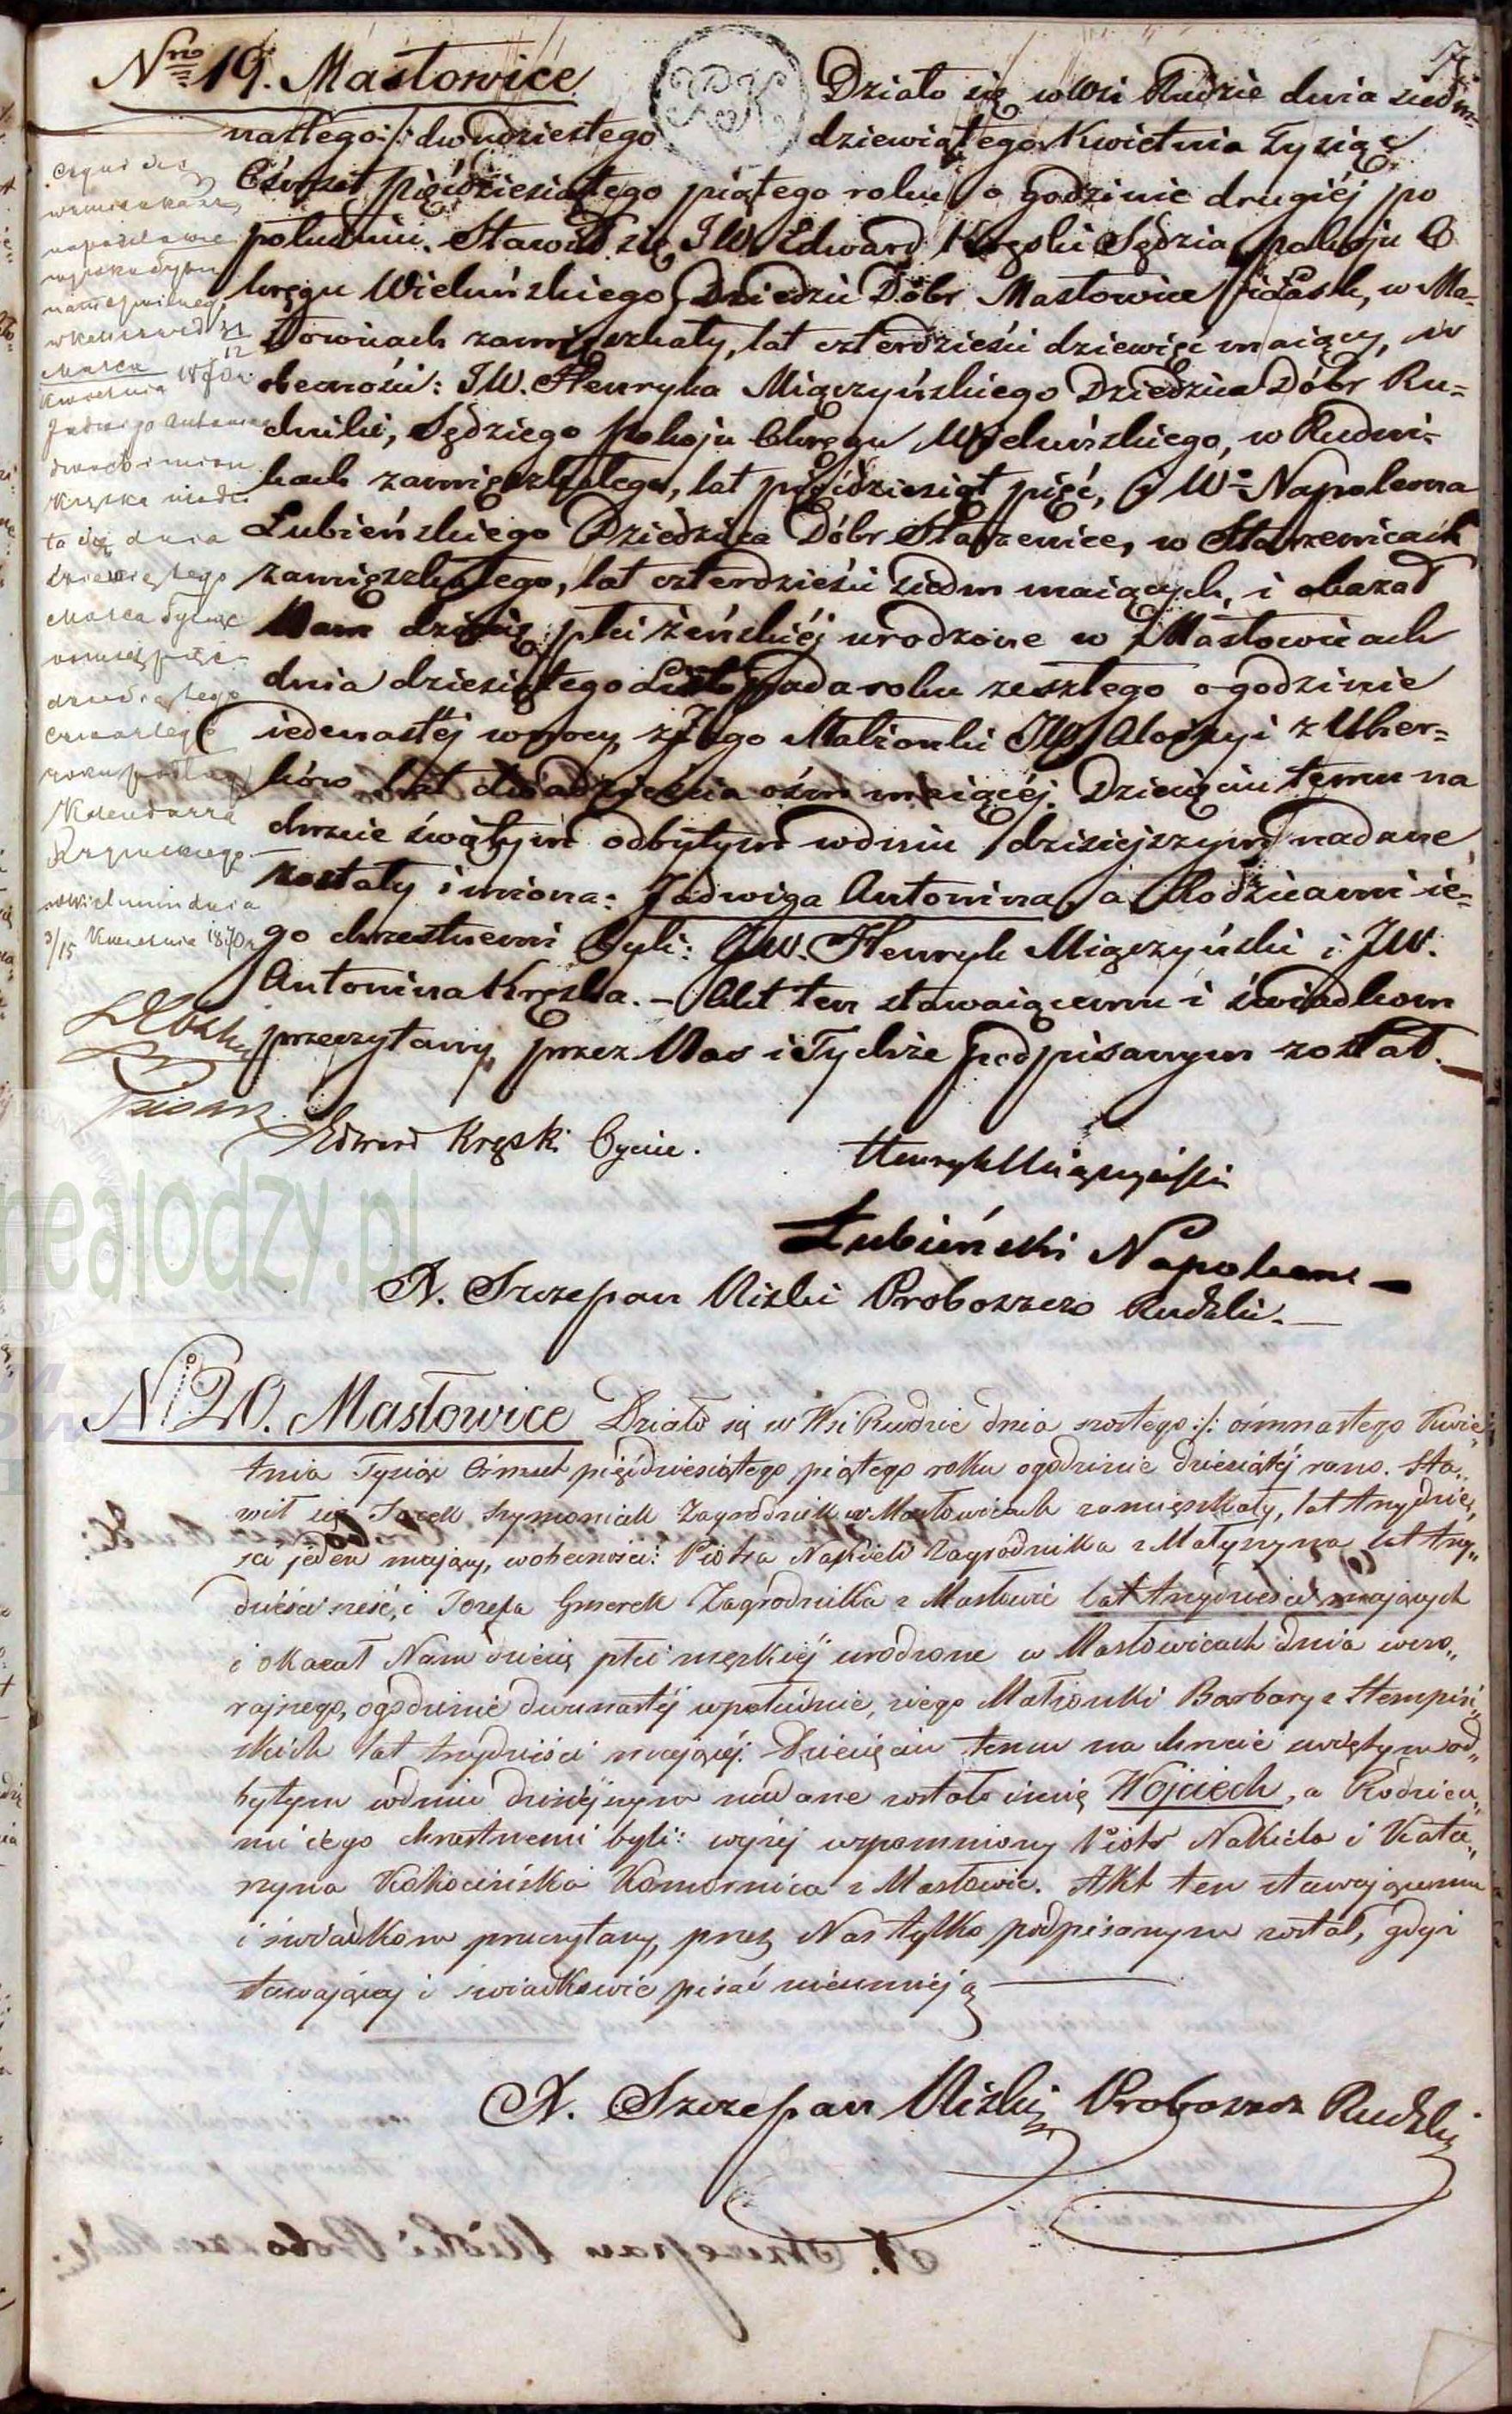 Nro 19. Masłowice
Działo się w Wsi Rudzie dnia siedm-
nastego :/: dwudziestego dziewiątego Kwietnia Tysiąc
Ośmset pięćdziesiątego piątego roku o godzinie drugiéj po
południu. Stawił się JW. Edward Kręski Sędzia pokoju O
kręgu Wieluńskiego, Dziedzic Dóbr Masłowice i Łask, w Ma-
słowicach zamięszkały, lat czterdzieści dziewięć maiący, w
obecności: JW. Henryka Miączyńskiego Dziedzica Dóbr Ru-
dniki, Sędziego pokoju Okręgu Wieluńskiego, w Rudni-
kach zamięszkałego, lat pięćdziesiąt pięć, i W. Napoleona
Łubieńskiego Dziedzica Dóbr Starzenice, w Starzenicach
zamięszkałego, lat czterdzieści siedm maiących, i okazał
Nam dziecię płci żeńskiéj urodzone w Masłowicach
dnia dziesiątego Listopada roku zeszłego o godzinie
iedenastéj w nocy, z Jego Małżonki JW. Aloizyi z Ulter-
ków lat dwadzieścia ośm maiącéj. Dziecięciu temu na
chrzcie świętym odbytym w dniu dzisiejszym nadane
zostały imiona: Jadwiga Antonina, a Rodzicami ie-
go chrzestnemi byli: JW. Henryk Miączyński i JW.
Antonina Kręska. – Akt ten stawaiącemu i świadkom
przeczytany, przez Nas i Tychże podpisanym został.
Czyni się
wzmianka że
na podstawie
wyroku Trybu
nału Cywilnego
w Kaliszu w d. 31
Marca
12
Kwietnia 1870 r.
Jadwiga Antonina
dwóch imion
Kręska urodzi
ła się dnia
dziewiątego
Marca Tysiąc
ośmset pięć-
dziesiątego
czwartego
roku podług
Kalendarza
Rzymskiego
w Wieluniu dnia
3/15 Kwietnia 1870 r.
Pisarz
Edward Kręski Oycie.
Henryk Miączyński
Łubieński Napoleon
X. Szczepan Nizki Proboszcz Rudzki.
N 20. Masłowice Działo się w Wsi Rudzie dnia szóstego :/: ośmnastego Kwie
tnia Tysiąc Ośmset pięćdziesiątego piątego roku o godzinie dziesiątéj rano. Sta„
wił się Jacek Szymoniak Zagrodnik w Masłowicach zamięszkały, lat trzydzie„
ści jeden mający, w obecności: Piotra Nakiela Zagrodnika z Małyszyna lat trzy„
dzieści sześć, i Józefa Gmerek Zagrodnika z Masłowic lat trzydzieści mających
i okazał Nam dziecię płci męzkiéj urodzone w Masłowicach dnia wczo„
rajszego, o godzinie dwunastéj w południe, z iego Małżonki Barbary z Stempiń„
skich lat trzydzieści mającéj. Dziecięciu temu na chrzcie świętym od„
bytym w dniu dzisiéjszym nadane zostało imię Wojciech, a Rodzica„
mi iego chrzestnemi byli: wyżéj wspomniony Piotr Nakiela i Kata„
rzyna Kokocińska Komornica z Masłowic. Akt ten stawającemu
i świadkom przeczytany, przez Nas tylko podpisanym został, gdyż
stawający i świadkowie pisać nieumieją
X. Szczepan Nizki Proboszcz Rudzki
nealodzy.pl